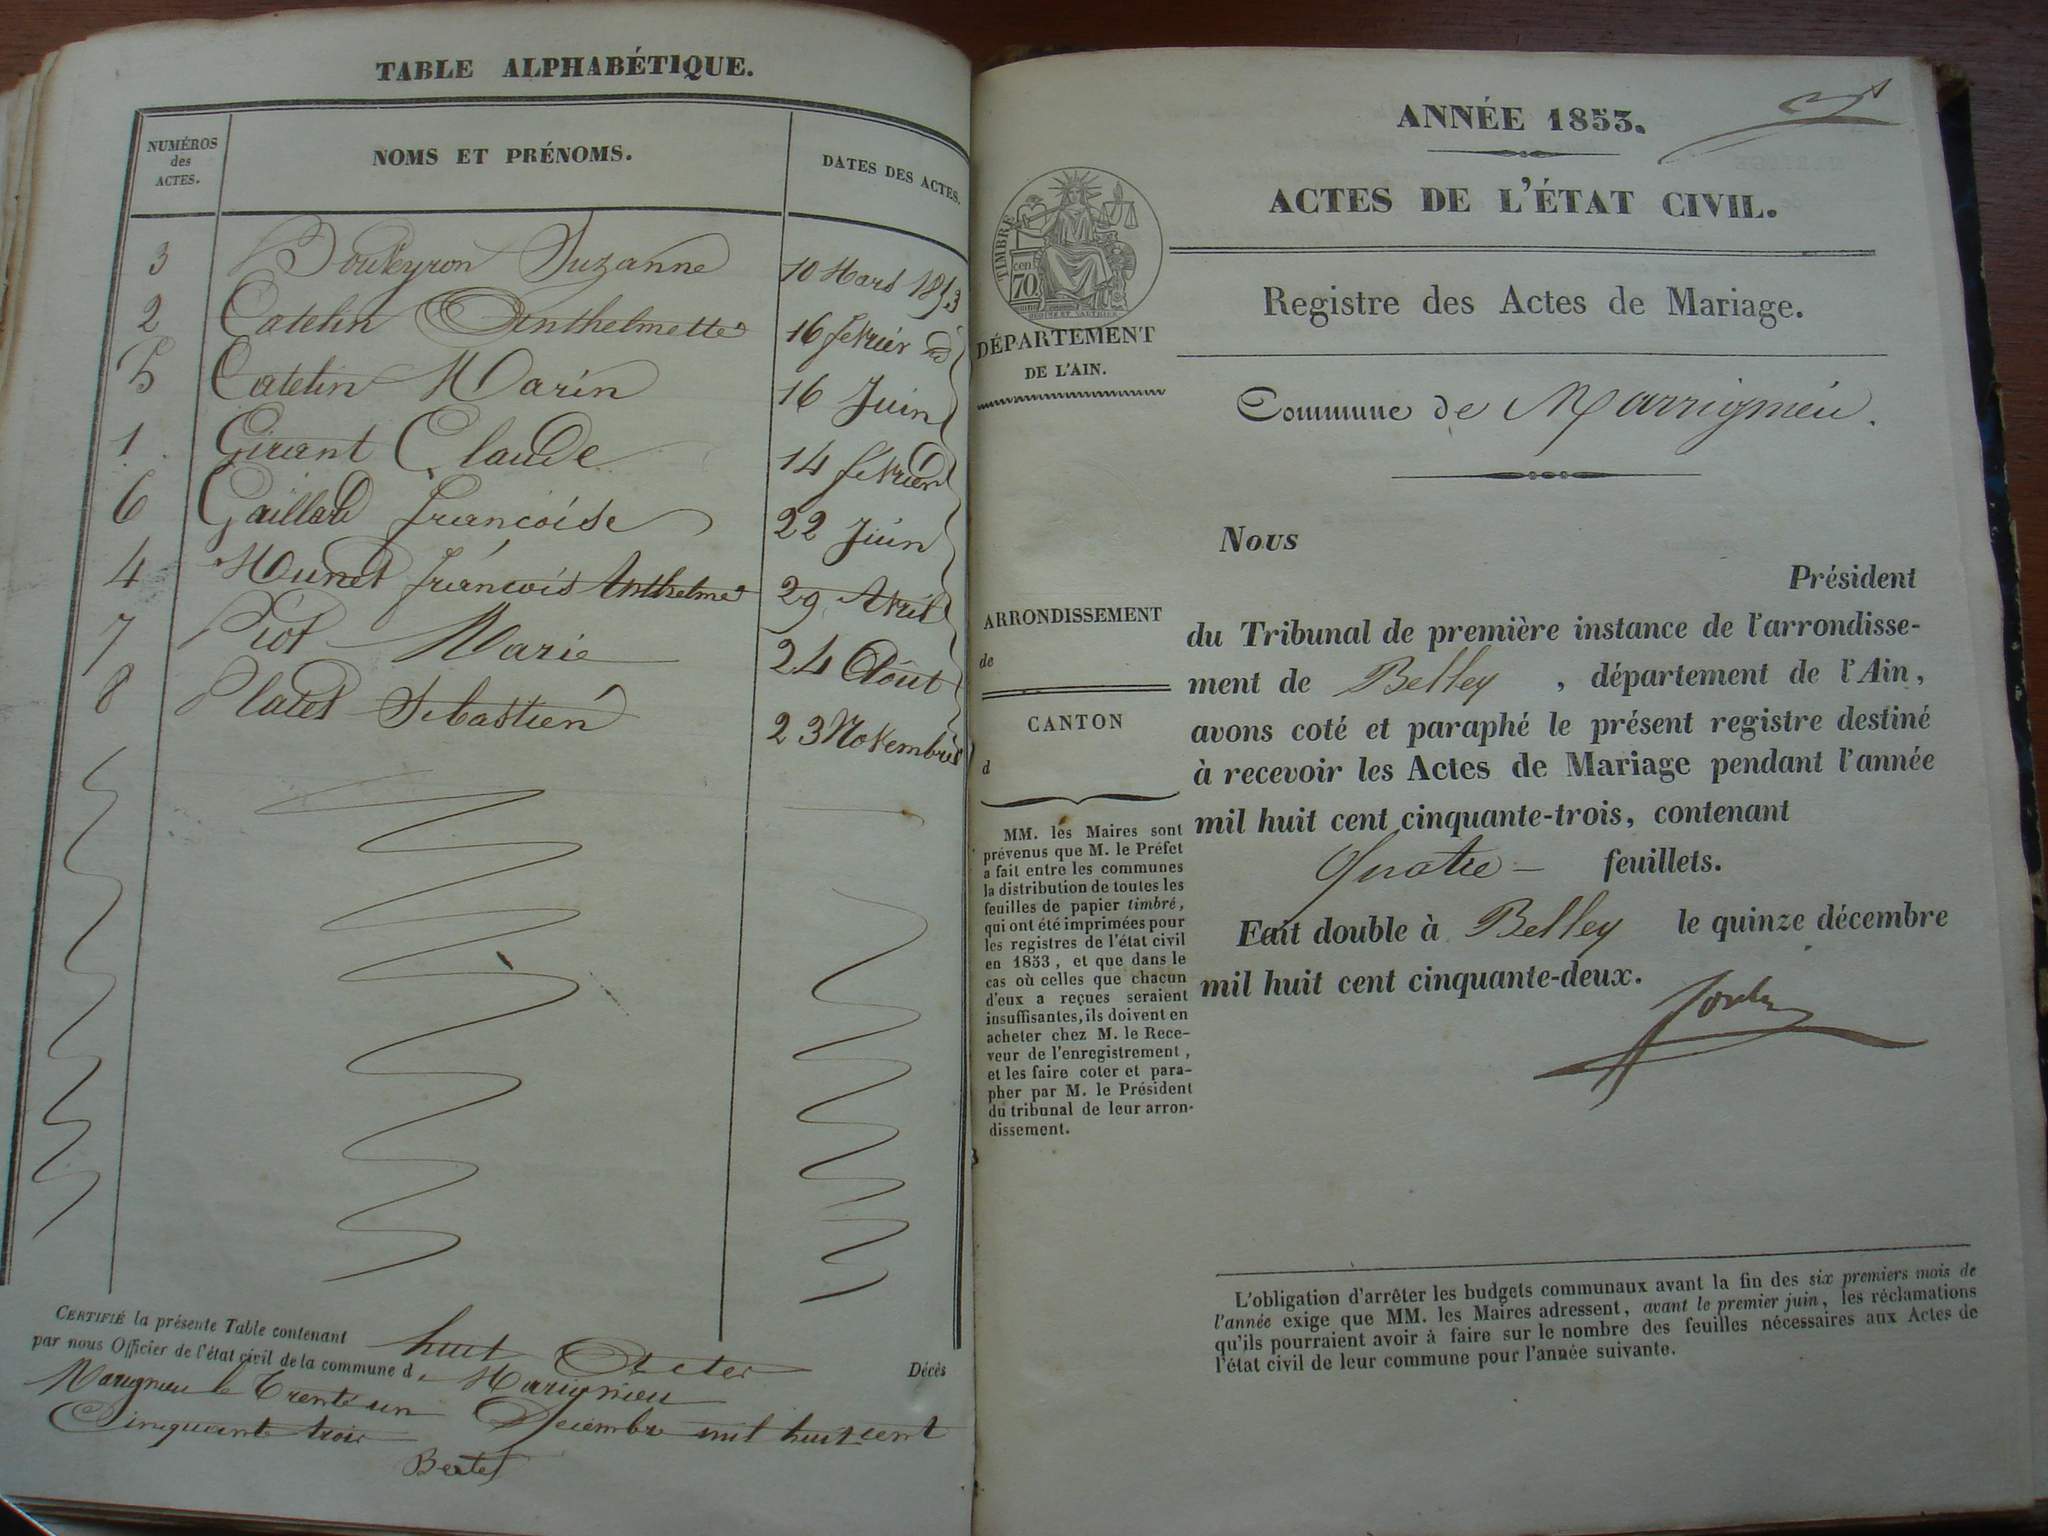 TABLE ALPHABÉTIQUE.
NUMÉROS des ACTES. NOMS ET PRÉNOMS. DATES DES ACTES.
3 Bouveyron Suzanne 10 Mars 1853
2 Catelin Anthelmette 16 fevrier
5 Catelin Marin 16 Juin
1 Girant Claude 14 fevrier
6 Gaillard françoise 22 Juin
4 Munet françois Anthelme 29 Avril
7 Piot Marie 24 Août
8 Sebastien 23 Novembre
CERTIFIÉ la présente Table contenant huit Actes Décès
par nous Officier de l'état civil de la commune d. Marignieu
Marignieu le Trente un Decembre mil huit cent
Cinquante trois
ANNÉE 1853.
ACTES DE L'ÉTAT CIVIL.
TIMBRE
cent
70
Registre des Actes de Mariage.
DÉPARTEMENT
DE L'AIN.
Commune de Marrignieu.
Nous
Président
du Tribunal de première instance de l'arrondisse-
ment de Belley , département de l'Ain,
avons coté et paraphé le présent registre destiné
à recevoir les Actes de Mariage pendant l'année
mil huit cent cinquante-trois, contenant
Quatre — feuillets.
Fait double à Belley le quinze décembre
mil huit cent cinquante-deux.
ARRONDISSEMENT
de
CANTON
d
MM. les Maires sont
prévenus que M. le Préfet
a fait entre les communes
la distribution de toutes les
feuilles de papier timbré,
qui ont été imprimées pour
les registres de l'état civil
en 1853, et que dans le
cas où celles que chacun
d'eux a reçues seraient
insuffisantes, ils doivent en
acheter chez M. le Rece-
veur de l'enregistrement,
et les faire coter et para-
pher par M. le Président
du tribunal de leur arron-
dissement.
L'obligation d'arrêter les budgets communaux avant la fin des six premiers mois de
l'année exige que MM. les Maires adressent, avant le premier juin, les réclamations
qu'ils pourraient avoir à faire sur le nombre des feuilles nécessaires aux Actes de
l'état civil de leur commune pour l'année suivante.